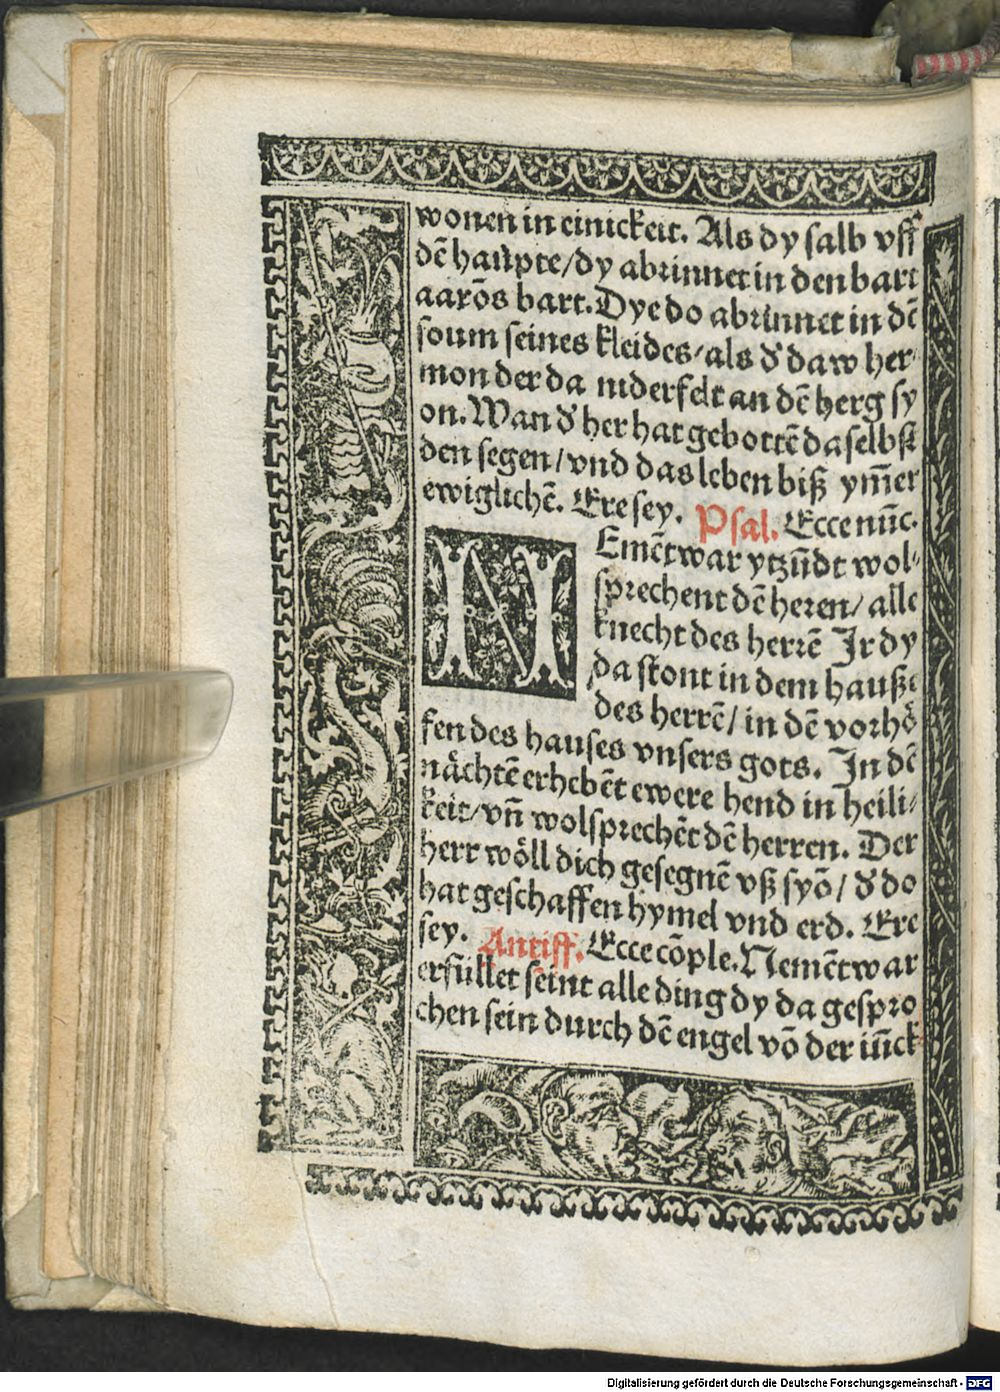 wonen in einickeit. Als dy salb vff
dē haupte/dy abrinnet in den bart
aarōs bart. Dye do abrinnet in dē
soum seines kleides/als dʼ daw her⸗
mon der da niderfelt an dē berg sy
on. Wan dʼ her hat gebottē daselbst
den segen/vnd das leben biß ym̄er
ewiglichē. Ere sey. Psal. Ecce nūc.
NEmēt war ytzūdt wol⸗
sprechent dē heren/ alle
knecht des herrē Ir dy
da stont in dem hauße
des herrē/ in dē vorhö
fen des hauses vnsers gots. In dē
nächtē erhebēt ewere hend in heili⸗
keit/vn̄ wolsprechēt dē herren. Der
herr wöll dich gesegnē vß syō/ dʼ do
hat geschaffen hymel vnd erd. Ere
sey. Antiff. Ecce cōple. Nemēt war
erfüllet seint alle ding dy da gespro
chen sein durch dē engel vō der iūck⸗
Digitalisierung gefördert durch die Deutsche Forschungsgemeinschaft - DFG